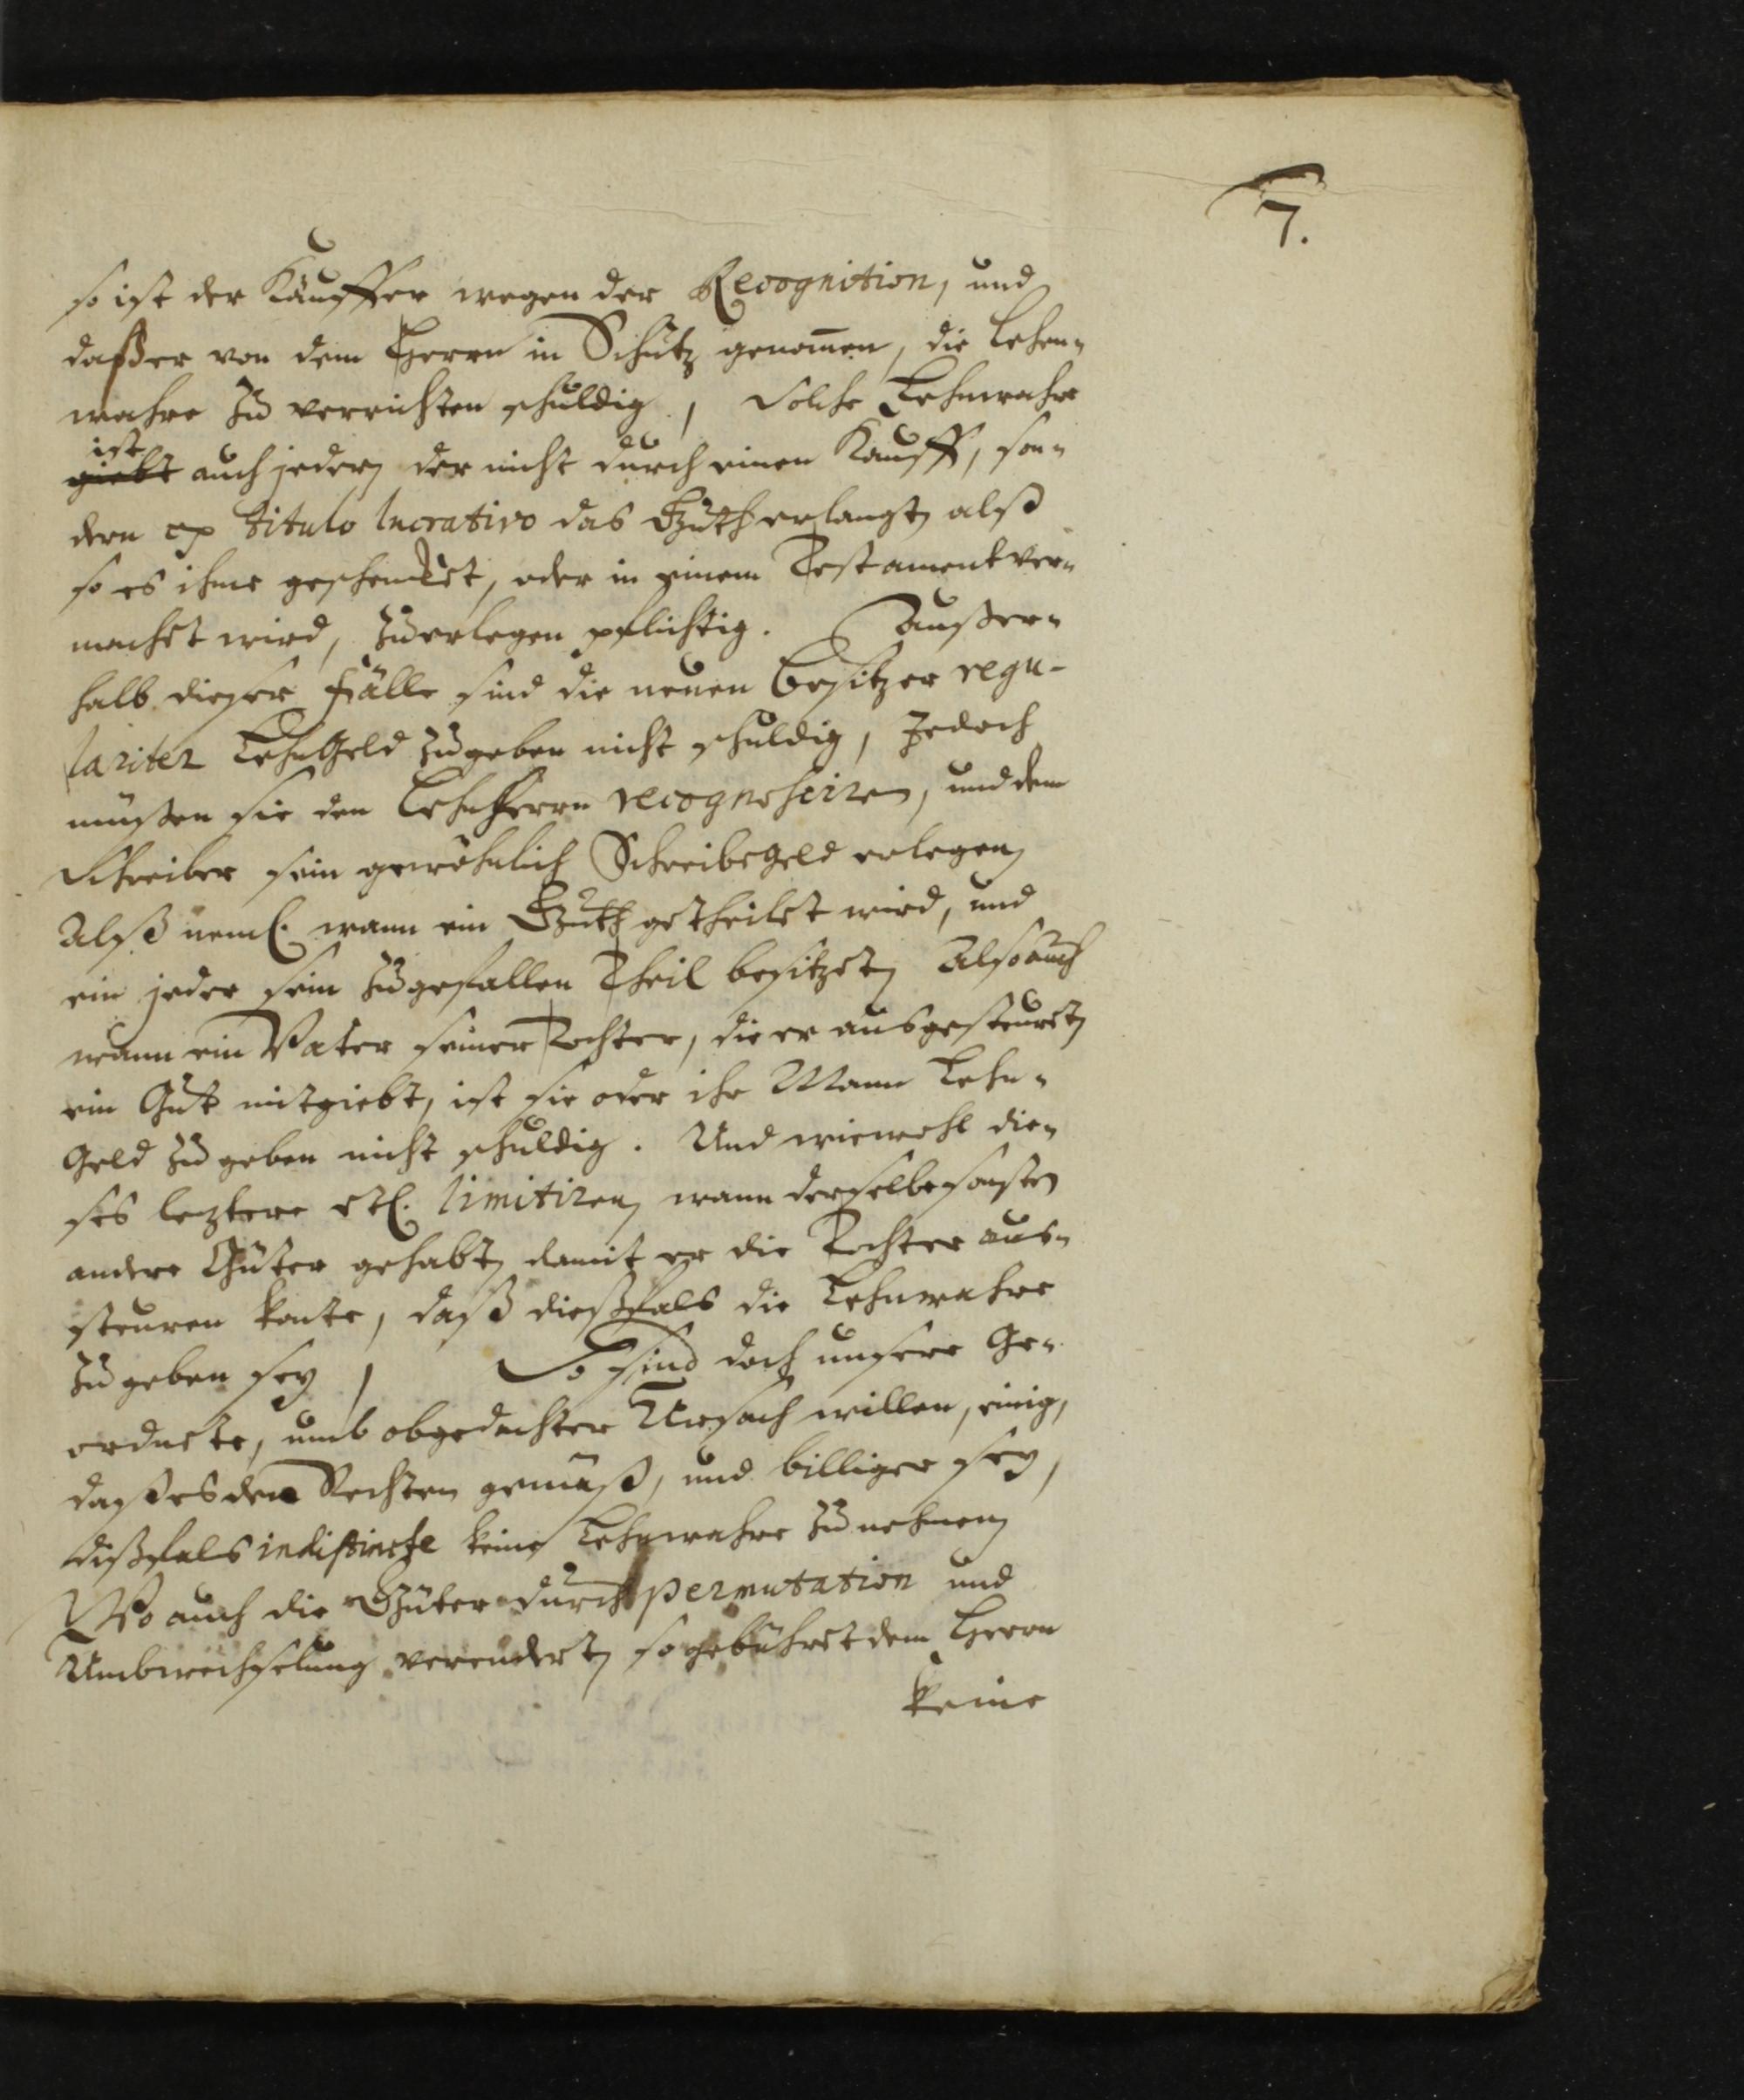 7.
so ist der Käuffer wegen der Recognition, und
daß er von dem Herrn in Schutz genom̄en, die Lehen¬
wahre zu verrichten schuldig, Solche Lehnwahre
ist
giebt auch jeder, der nicht durch einen Kauff, son¬
dern ex titulo lucrativo das Guth erlangt, alß
so es ihme geschencket, oder in einem Testament ver¬
machet wird, zu erlegen pflichtig. Außer¬
halb dieser Fälle sind die neuen Besitzer regu-
lariter LehnGeld zu geben nicht schuldig, Jedoch
müßen sie den LehnHerrn recognosciren, und dem
Schreiber sein gewöhnlich Schreibegeld erlegen,
Alß neml. wann ein Guth getheilet wird, und
ein jeder sein zugefallen Theil besitzet, Also auch
wann ein Vater seiner Tochter, die er ausgesteuret,
ein Gut mitgiebt, ist sie oder ihr Mann Lehn¬
Geld zu geben nicht schuldig. Und wiewohl die¬
ses leztere etl. limitiren, wann derselbe sonsten
andere Güter gehabt, damit er die Tochter aus¬
steuren konte, daß dießfals die Lehnwahre
zu geben sey, So sind doch unsere Ge¬
ordnete, umb obgedachter Ursach willen, einig,
daß es den Rechten gemäß, und billiger sey,
dißfals indistincte keine Lehnwahre zu nehmen,
Wo auch die Güter durch permutation und
Umbwechselung verendert, so gebühret dem Herrn
keine